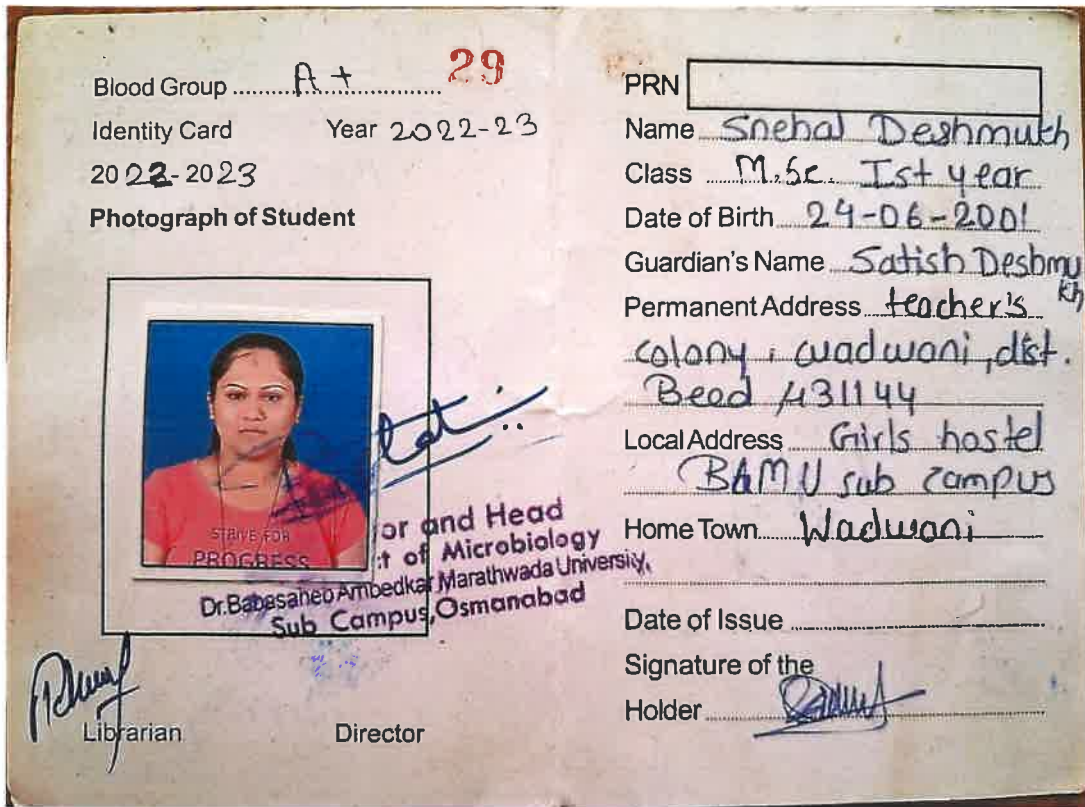 Blood Group A+ 29
Identity Card Year 2022-23
2022-2023
Photograph of Student
STRIVE FOR
PROGRESS
or and Head
t of Microbiology
Dr.Babasaheb Ambedkar Marathwada University,
Sub Campus,Osmanabad
Librarian Director
PRN
Name Snehal Deshmukh
Class M.Sc. Ist year
Date of Birth 24-06-2001
Guardian's Name Satish Deshmu
kh
Permanent Address teacher's
colony, wadwani, dist.
Beed 431144
Local Address Girls hostel
BAMU sub campus
Home Town Wadwani
Date of Issue
Signature of the
Holder